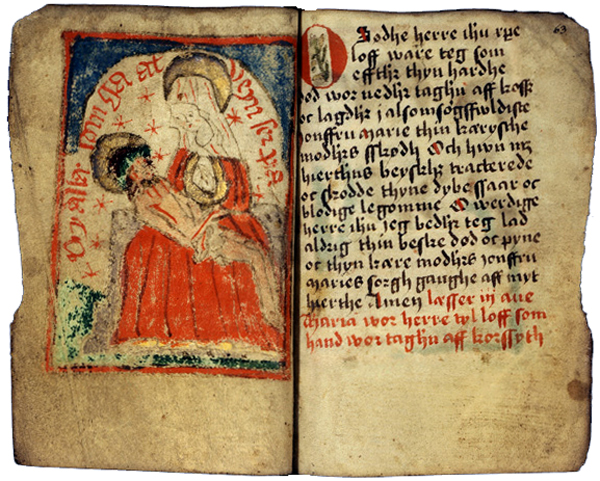 alle som ga at veyn
63
O Godhe herre ihu xpe
loff ware teg som
effthr thyn hardhe
dod wor nedhr taghn aff korss
oc lagdhr j alsomsogffwldiste
jonffru marie thin kærysthe
modhrs skodh Och hwn mz
hierthns beyskhz tracterede
oc skodde thyne dybe saar oc
blodige legomme O werdige
herre ihu jeg bedhr teg lad
aldrig thin beske dod oc pyne
oc thyn kære modhrs jonffru
maries sorgh ganghe aff myt
hierthe Amen læsser iij aue
maria wor herre tyl loff som
hand wor taghn aff korssyth